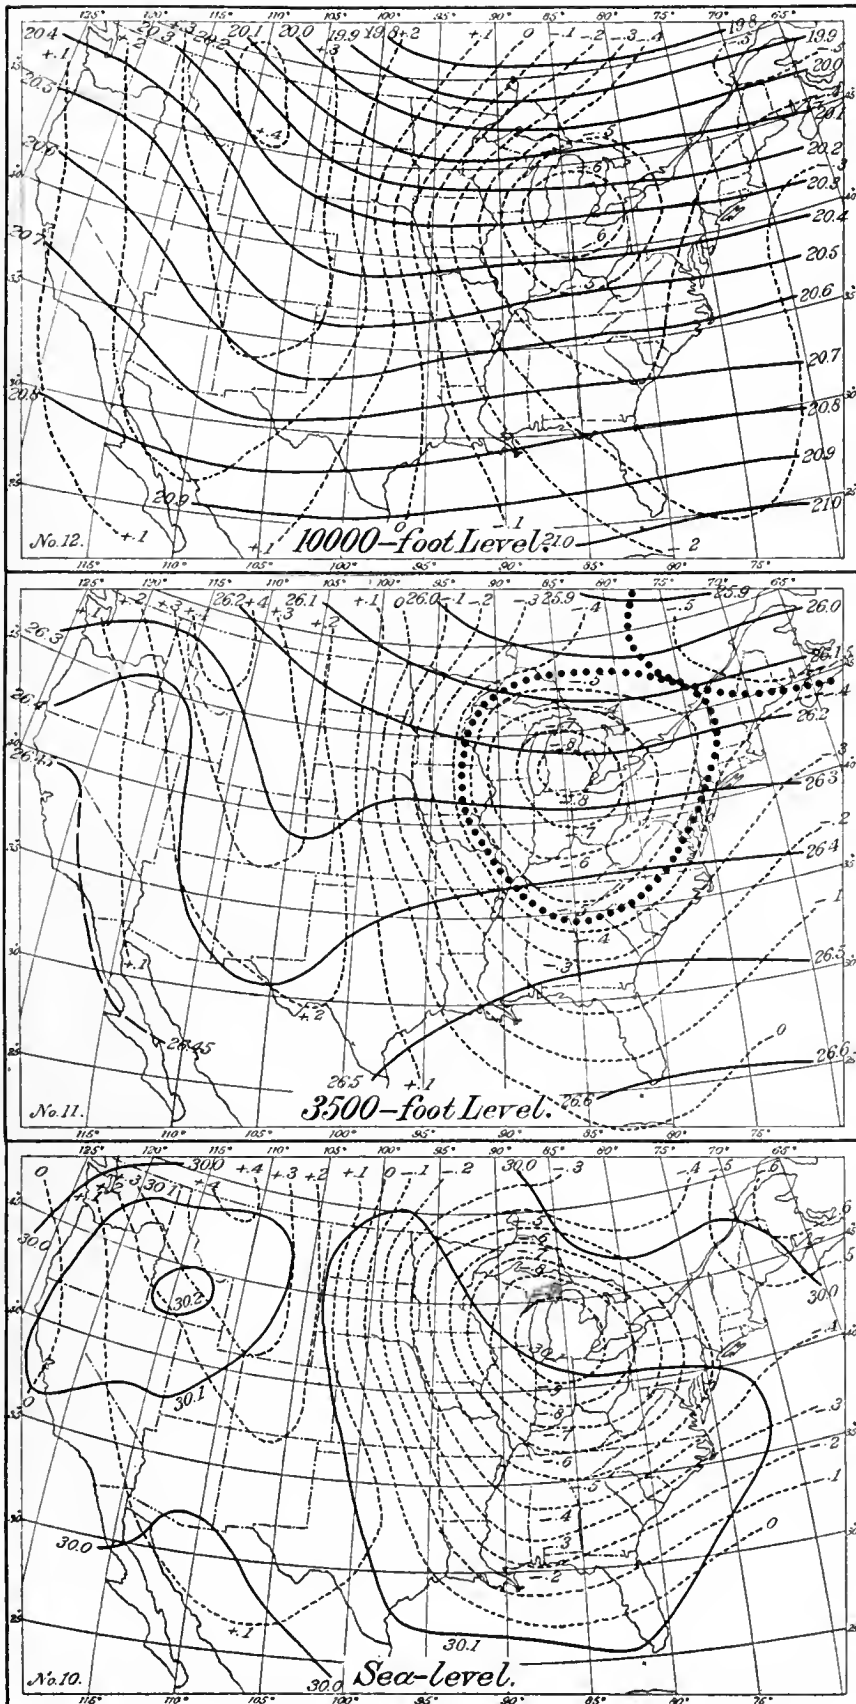 125° 120° 115° 110° 105° 100° 95° 90° 85° 80° 75° 70° 65°
20.4 +.1 +.2 +.3 20.3 20.2 20.1 20.0 +.3 19.9 19.8 +.2 +.1 0 -.1 -.2 -.3 -.4 19.8 19.9
-.5 20.0
20.5 +.4 -.5 20.1
-.6 20.2 -.3
20.6 20.3
20.4
-.6 20.5
20.7 -.5 20.6
20.7
20.8 20.8
20.9
20.9 21.0
+.1 +.1 0 -.1 21.0 -.2
No. 12. 10000-foot Level.
110° 105° 100° 95° 90° 85° 80° 75°
125° 120° 115° 110° 105° 100° 95° 90° 85° 80° 75° 70° 65°
+.1 +.2 +.3 +.4 26.2 +.4 +.3 26.1 +.2 +.1 0 26.0 -.1 -.2 -.3 25.9 -.4 -.5 25.9 26.0
26.3 26.1 -.5
26.4 -.5 -.4
26.2
-.7 -.3
-.8 26.3
-.8
-.7 -.2
-.6 26.4
-.4 -.1
+.1 -.3 26.5
+.2 0
26.45
26.5 +.1 26.6 26.6
No. 11. 3500-foot Level.
115° 110° 105° 100° 95° 90° 85° 80° 75°
125° 120° 115° 110° 105° 100° 95° 90° 85° 80° 75° 70° 65°
0 +.1 +.2 +.3 30.1 30.0 +.4 +.4 +.3 +.2 +.1 0 -.1 -.2 30.0 -.3 -.4 -.5 -.6
30.0 -.5 -.6
-.6 -.5
-.8
30.2 30.0
-.4
30.1 -.9
0 -.8 -.3
-.7
-.6 -.2
-.5 -.1
-.4
30.0 -.3 0
-.2
+.1 30.1
30.0
No. 10. Sea-level.
115° 110° 105° 100° 95° 90° 85° 80° 75°